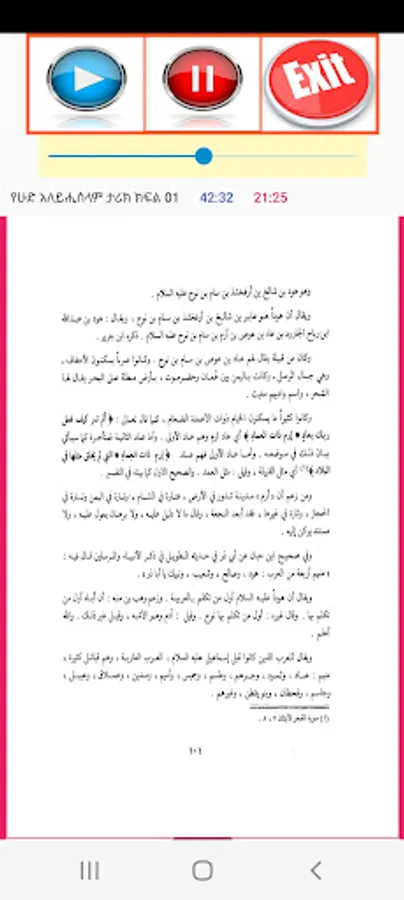 Exit
የሁድ አለይሒሰላም ታሪክ ክፍል 01 42:32 21:25
وهو هود بن شالخ بن أرفخشذ بن سام بن نوح عليه السلام .
ويقال أن هوداً هو عابر بن شالخ بن أرفخشذ بن سام بن نوح ، ويقال : هود بن عبدالله
ابن رباح الجارود بن عاد بن عوص بن أرم بن سام بن نوح عليه السلام . ذكره ابن جرير .
وكان من قبيلة يقال لهم عاد بن عوص بن سام بن نوح . وكانوا عرباً يسكنون الأحقاف ،
وهي جبال الرمل ، وكانت باليمن بين عُمان وحضرموت ، بأرض مطلة على البحر يقال لها
الشحر ، واسم واديهم مغيث .
وكانوا كثيراً ما يسكنون الخيام ذوات الأعمدة الضخام ، كما قال تعالى : ﴿ ألم تر كيف فعل
ربك بعاد • إرم ذات العماد ﴾ أي عاد إرم وهم عاد الأولى . وأما عاد الثانية فمتأخرة كما سيأتي
بيان ذلك في موضعه . وأما عاد الأولى فهم عاد ﴿ إرم ذات العماد • التي لم يخلق مثلها في
البلاد ﴾(١) أي مثل القبيلة ، وقيل : مثل العمد . والصحيح الأول كما بيناه في التفسير .
ومن زعم أن « أرم » مدينة تدور في الأرض ، فتارة في الشام ، وتارة في اليمن وتارة في
الحجاز ، وتارة في غيرها ، فقد أبعد النجعة ، وقال ما لا دليل عليه ، ولا برهان يعول عليه ، ولا
مستند يركن إليه .
وفي صحيح ابن حبان عن أبي ذر في حديثه الطويل في ذكر الأنبياء والمرسلين قال فيه :
« منهم أربعة من العرب : هود ، وصالح ، وشعيب ، ونبيك يا أبا ذر » .
ويقال أن هوداً عليه السلام أول من تكلم بالعربية . وزعم وهب بن منبه : أن أباه أول من
تكلم بها . وقال غيره : أول من تكلم بها نوح . وقيل : آدم وهو الأشبه ، وقيل غير ذلك . والله
أعلم .
ويقال للعرب الذين كانوا قبل إسماعيل عليه السلام ، العرب العاربة ، وهم قبائل كثيرة ،
منهم : عاد ، وثمود ، وجرهم ، وطسم ، وجديس ، وأميم ، ومدين ، وعملاق ، وعبيل ،
وجاسم ، وقحطان ، وبنو يقطن ، وغيرهم .
(١) سورة الفجر الآيتان ٧ ، ٨ .